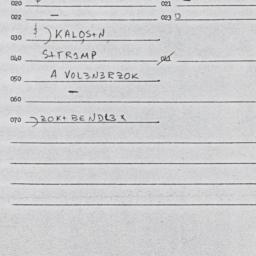 020 021
022 — 023 0
030 $ ) KALOS+N
040 S+TR1MP 041
050 A VOL3N3RZOK
060 —
070 )ZOK+BEND